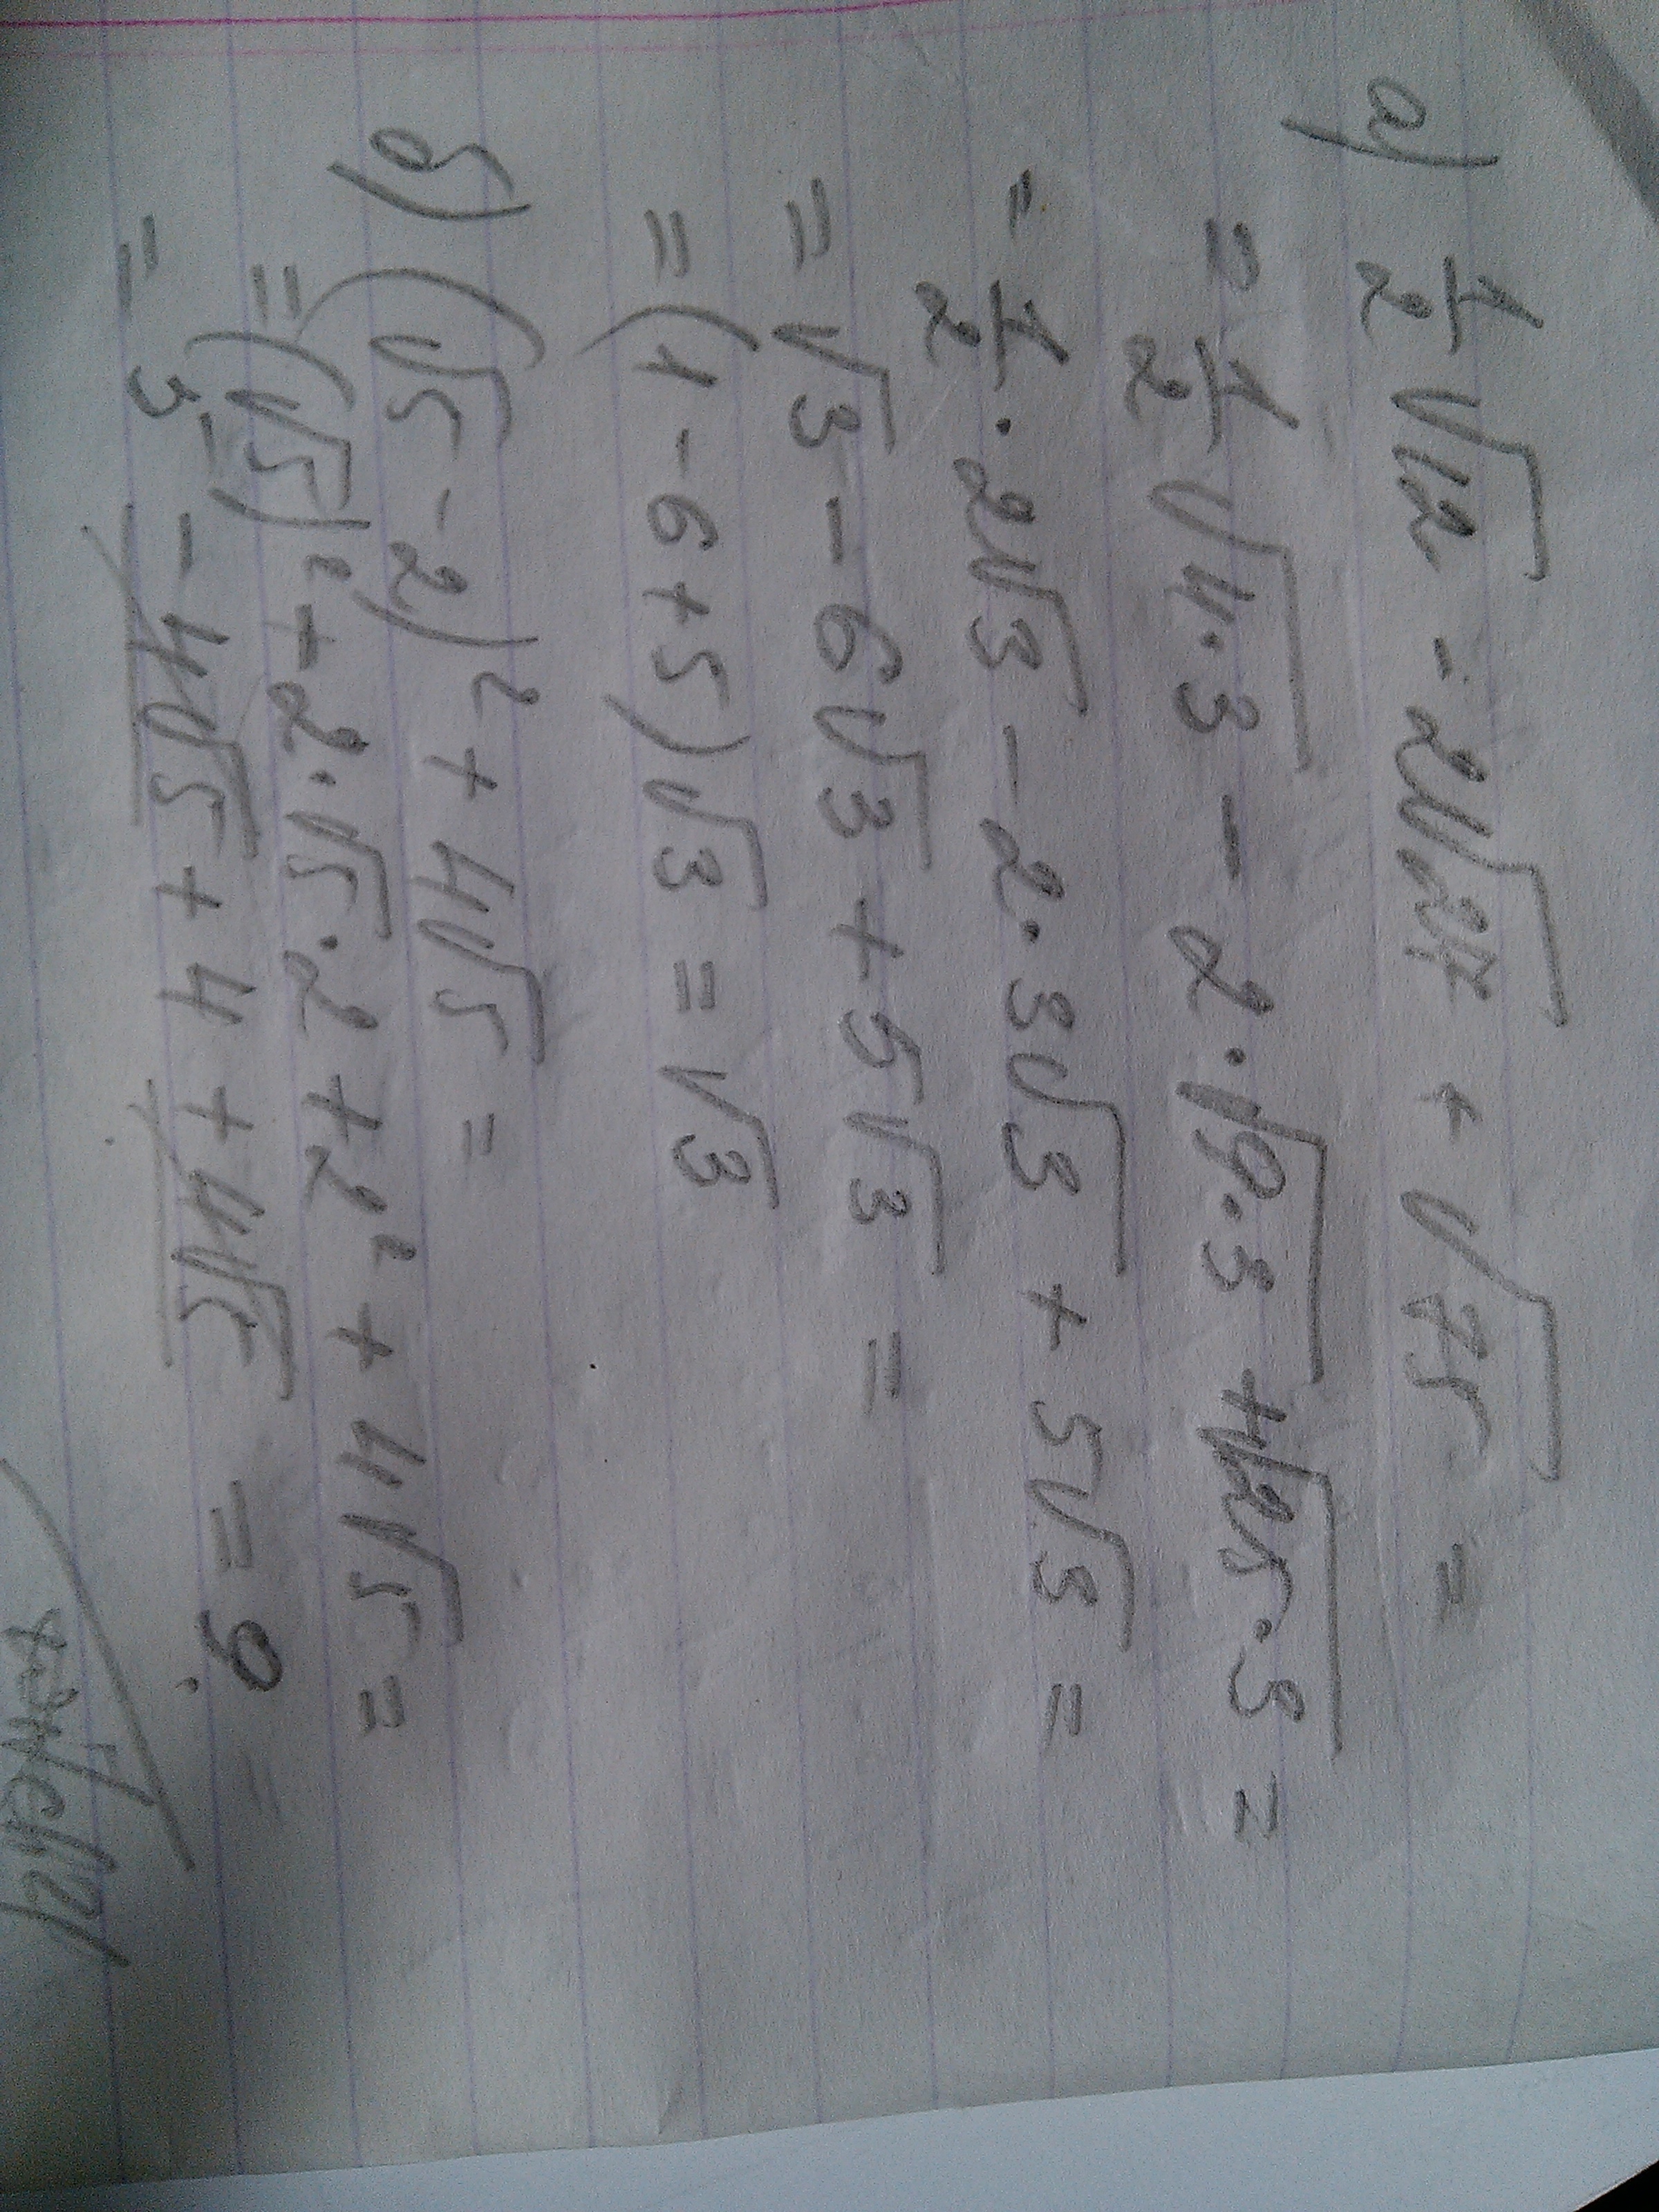 а) 1/2 √12 - 2√27 + √75 =
= 1/2 √4·3 - 2·√9·3 + √25·3 =
= 1/2 · 2√3 - 2·3√3 + 5√3 =
= √3 - 6√3 + 5√3 =
= (1-6+5)√3 = √3
б) (√5 - 2)² + 4√5 =
= (√5)² - 2·√5·2 + 2² + 4√5 =
= 5 - 4√5 + 4 + 4√5 = 9.